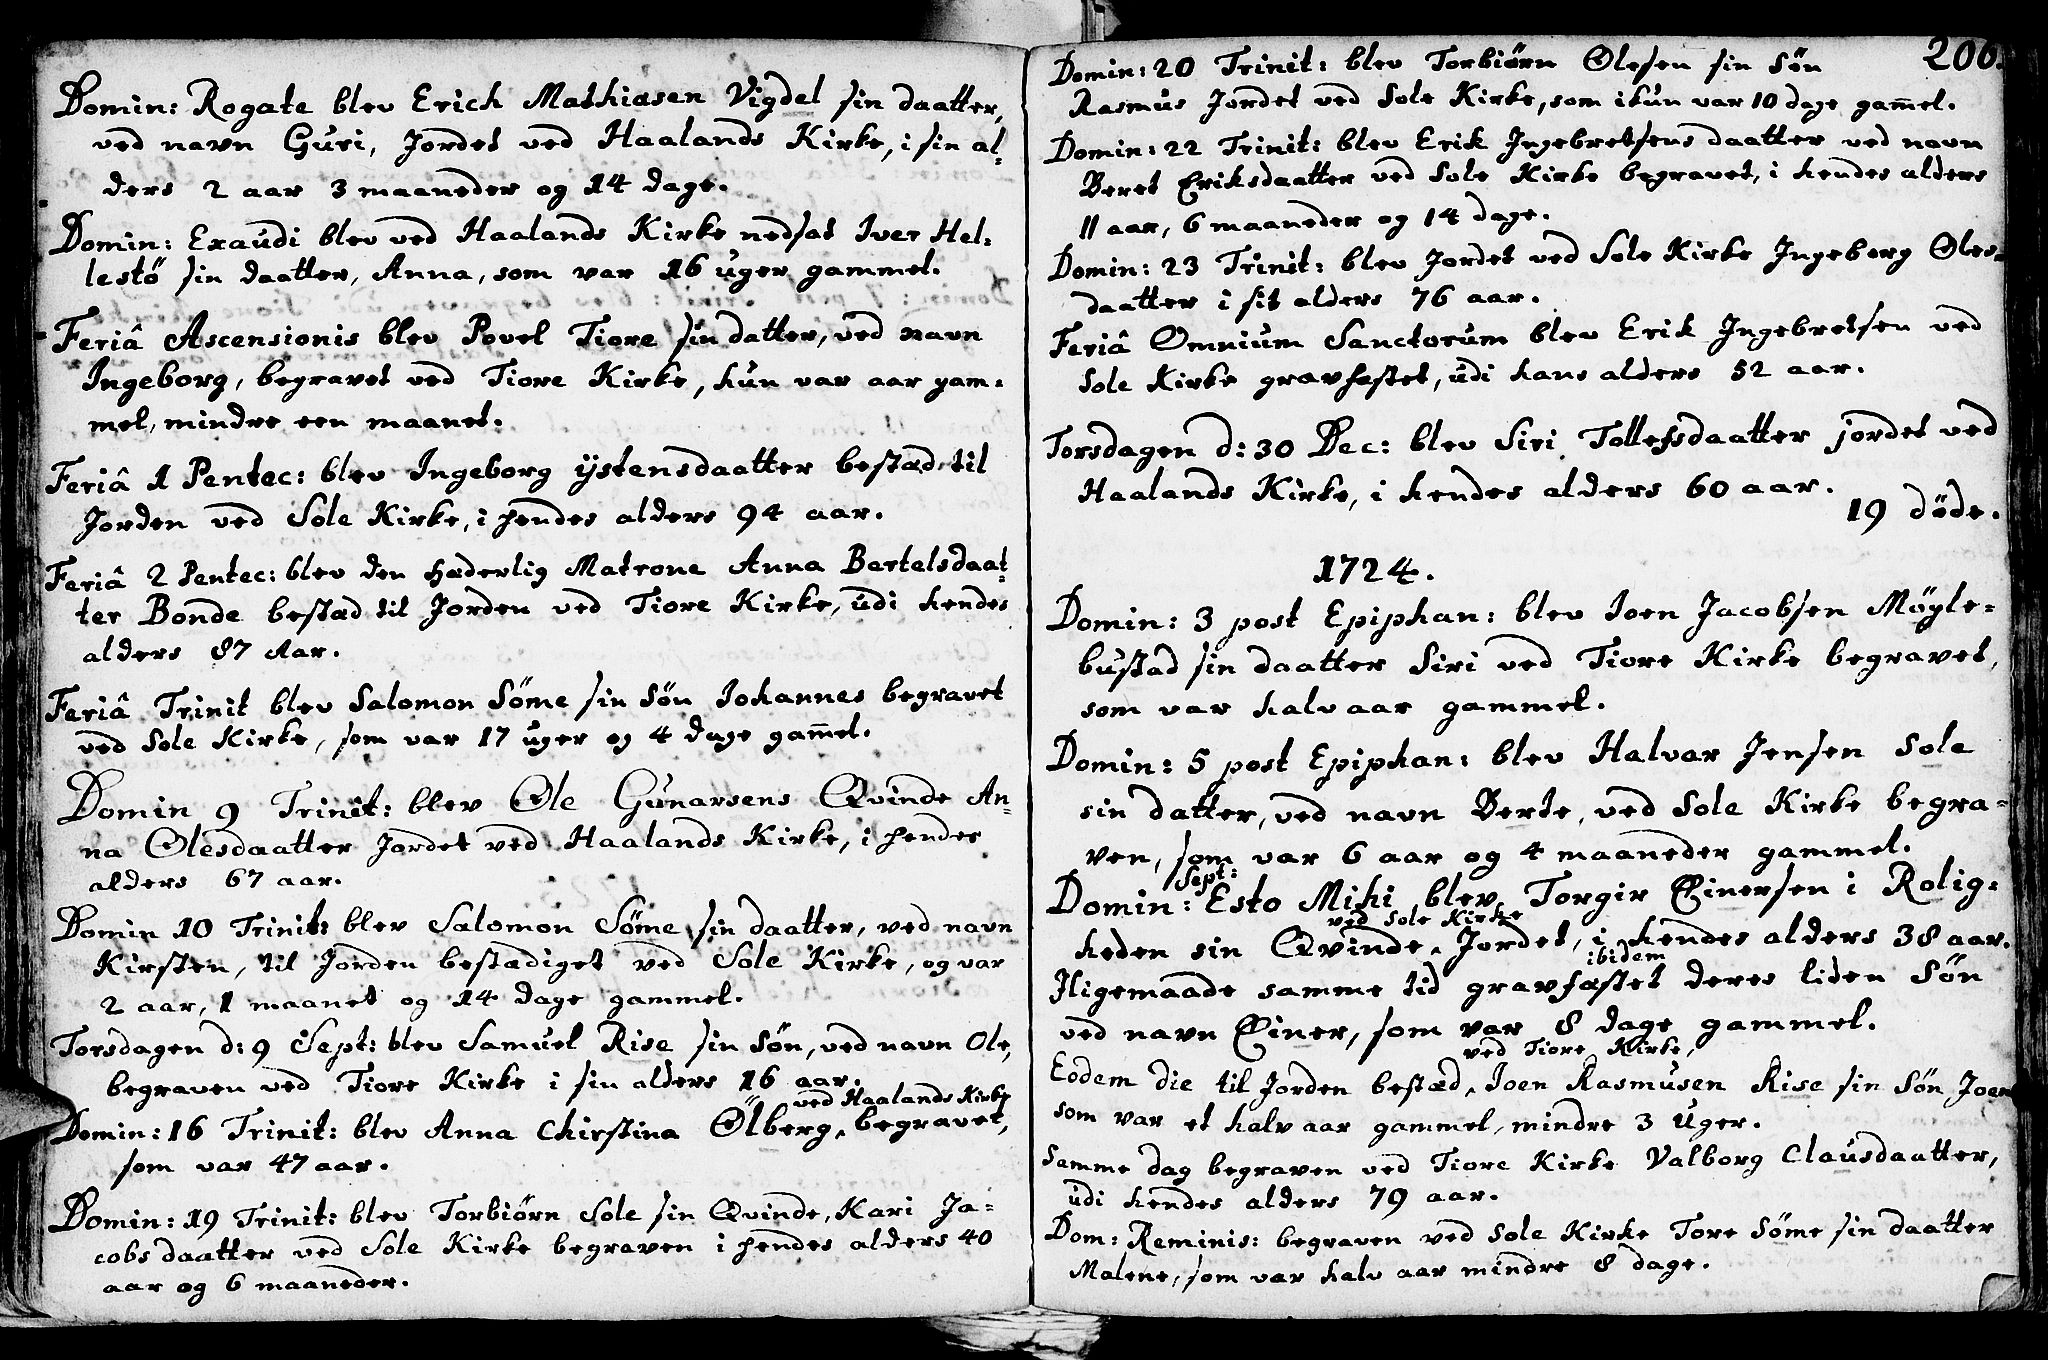 Domin: Rogate blev Erich Mathiasen Vigdel sin daatter,
ved navn Guri, Jordet ved Haalands Kirke, i sin al-
ders 2 aar 3 maaneder og 14 dage.
Domin: Exaudi blev ved Haalands Kirke nedsat Iver Hel-
lestö sin daatter, Anna, som var 16 uger gammel.
Feriâ Ascensionis blev Povel Tiore sin datter, ved navn
Ingeborg, begravet ved Tiore Kirke, hun var aar gam-
mel, mindre een maanet.
Feriâ 1 Pentec: blev Ingeborg ÿstensdaatter bestæd til
Jorden ved Sole Kirke, i hendes alders 94 aar.
Feriâ 2 Pentec: blev den hæderlig Matrone Anna Bertelsdaat-
ter Bonde bestæd til Jorden ved Tiore Kirke, udi hendes
alders 87 Aar.
Feriâ Trinit blev Salomon Söme sin Sön Johannes begravet
ved Sole Kirke, som var 17 uger og 4 dage gam̄el.
Domin 9 Trinit: blev Ole Gunarsens Qvinde An-
na Olesdaatter Jordet ved Haalands Kirke, i hendes
alders 67 aar.
Domin 10 Trinit: blev Salomon Söme sin daatter, ved navn
Kirsten, til Jorden bestædiget ved Sole Kirke, og var
2 aar, 1 maanet og 14 dage gammel.
Torsdagen d: 9 Sept: blev Samuel Rise sin Sön, ved navn Ole,
begraven ved Tiore Kirke i sin alders 16 aar.
ved Haalands Kirke
Domin: 16 Trinit: blev Anna Chirstina Ölberg, begravet,
som var 47 aar.
Domin: 19 Trinit: blev Torbiörn Sole sin Qvinde, Kari Ja-
cobs daatter ved Sole Kirke begraven i hendes alders 40
aar og 6 maaneder.
206.
Domin: 20 Trinit: blev Torbiörn Olesen sin Sön
Rasmus Jordet ved Sole Kirke, som ikun var 10 dage gam̄el.
Domin: 22 Trinit: blev Erik Ingebretsens daatter ved navn
Beret Eriksdaatter ved Sole Kirke begravet, i hendes alders
11 aar, 6 maaneder og 14 dage.
Domin: 23 Trinit: blev Jordet ved Sole Kirke Ingeborg Oles-
daatter i sit alders 76 aar.
Feriâ Omnium Sanctorum blev Erik Ingebretsen ved
Sole Kirke gravfæstet, udi hans alders 52 aar.
Torsdagen d: 30 Dec: blev Siri Tollefsdaatter jordet ved
Haalands Kirke, i hendes alders 60 aar.
19 döde.
1724.
Domin: 3 post Epiphan: blev Joen Jacobsen Möyle-
bustad sin daatter Siri ved Tiore Kirke begravet,
som var halv aar gammel.
Domin: 5 post Epiphan: blev Halvar Jensen Sole
sin datter, ved navn Berte, ved Sole Kirke begra-
ven, som var 6 aar og 4 maaneder gammel.
Sept:
Domin: Esto Mihi blev Torgir Einersen i Rolig-
ved Sole Kirke
heden sin Qvinde, Jordet, i hendes alders 38 aar.
ibidem
Iligemaade samme tid gravfæstet deres liden Sön
ved navn Einer, som var 8 dage gammel.
ved Tiore Kirke,
Eodem die til Jorden bestæd, Joen Rasmusen Rise sin Sön, Joen
som var et halv aar gammel, mindre 3 Uger.
Samme dag begraven ved Tiore Kirke Valborg Clausdaatter,
udi hendes alders 79 aar.
Dom: Reminis: begraven ved Sole Kirke Tore Söme sin daatter
Malene, som var halv aar mindre 8 dage.